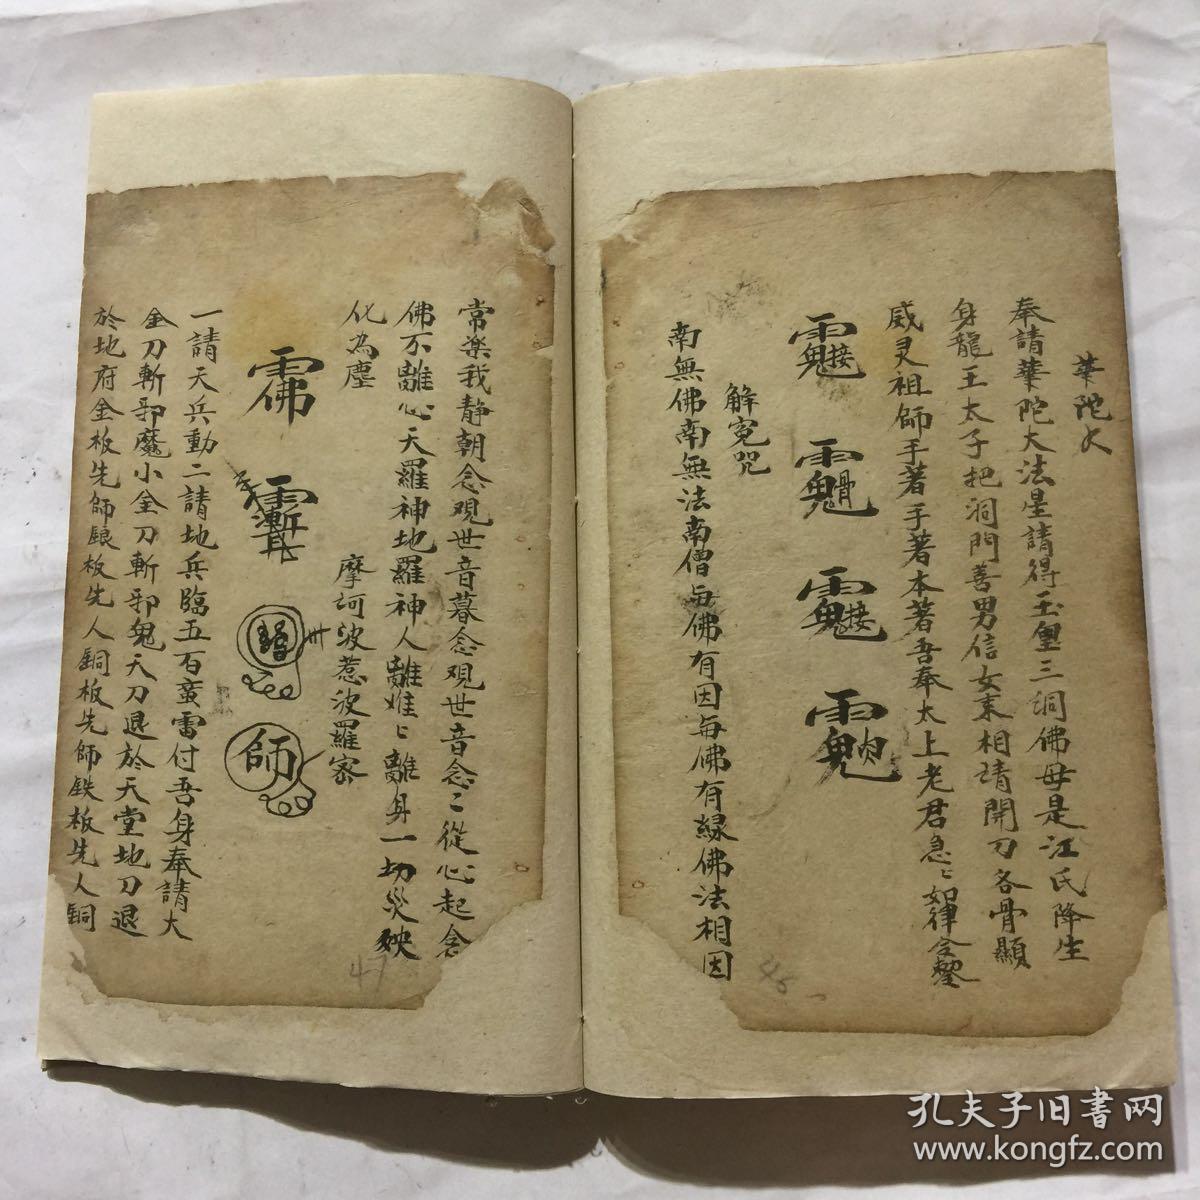 華陀大
奉請華陀大法星請得玉皇三洞佛母是江氏降生
身龍王太子把洞門善男信女来相請開刀各骨顯
威灵祖師手著手著本著吾奉太上老君急〻如律令
解冤咒
南無佛南無法南僧與佛有因每佛有緣佛法相因
常楽我静朝念观世音暮念观世音念〻從心起念
佛不離心天羅神地羅神人離难〻離身一切災殃
化為塵
摩訶波惹波羅密
師
一請天兵動二請地兵臨五百蛮雷付吾身奉請大
金刀斬邪魔小金刀斬邪鬼天刀退於天堂地刀退
於地府金板先師銀板先人銅板先師鉄板先人銅
47
48
孔夫子旧書网
www.kongfz.com